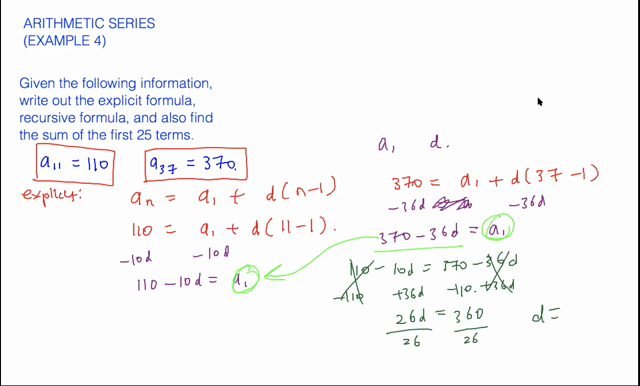 ARITHMETIC SERIES
(EXAMPLE 4)
Given the following information,
write out the explicit formula,
recursive formula, and also find
the sum of the first 25 terms.
a₁₁ = 110
a₃₇ = 370.
explicit:
aₙ = a₁ + d(n-1)
110 = a₁ + d(11-1).
-10d -10d
110 - 10d = a₁
a₁ d.
370 = a₁ + d(37-1)
-36d -36d
370 - 36d = a₁
110 - 10d = 370 - 36d
-110 +36d -110. +36d
26d = 360
26 26
d =